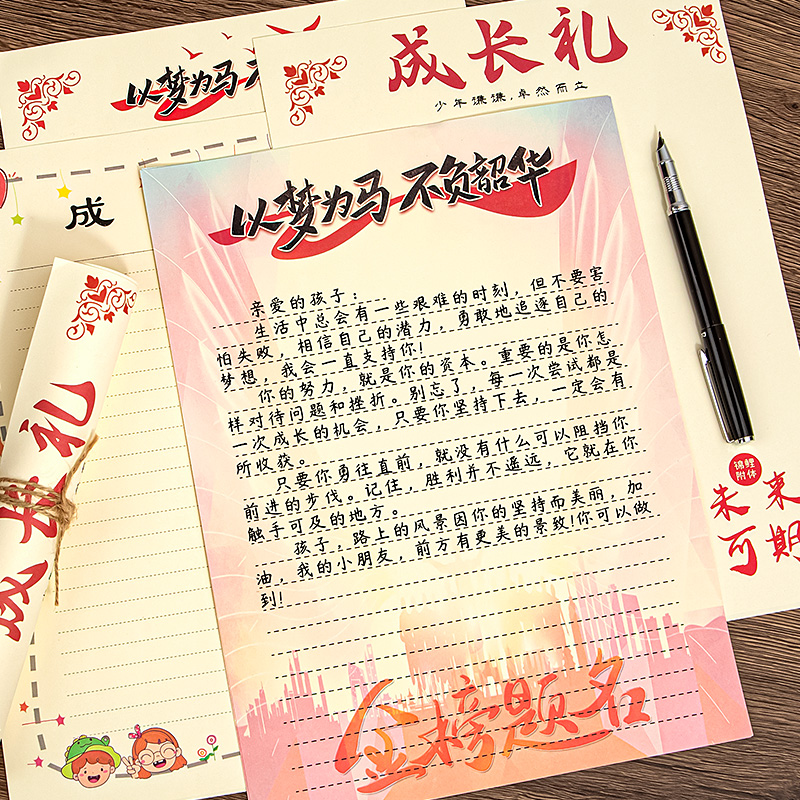 以梦为马
成长礼
少年谦谦,卓然而立
成
以梦为马 不负韶华
亲爱的孩子:
生活中总会有一些艰难的时刻,但不要害
怕失败,相信自己的潜力,勇敢地追逐自己的
梦想,我会一直支持你!
你的努力,就是你的资本。重要的是你怎
样对待问题和挫折。别忘了,每一次尝试都是
一次成长的机会,只要你坚持下去,一定会有
所收获。
只要你勇往直前,就没有什么可以阻挡你
前进的步伐。记住,胜利并不遥远,它就在你
触手可及的地方。
孩子,路上的风景因你的坚持而美丽,加
油,我的小朋友,前方有更美的景致!你可以做
到!
金榜题名
成长礼
锦鲤
附体
未来
可期